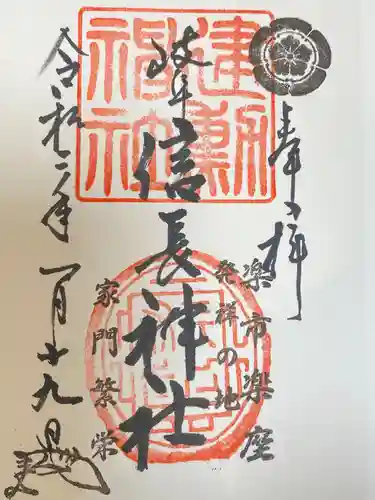 奉拝
建勲
神社
岐阜
信長神社
楽市楽座
発祥の地
家門繁栄
令和二年
一月十九日